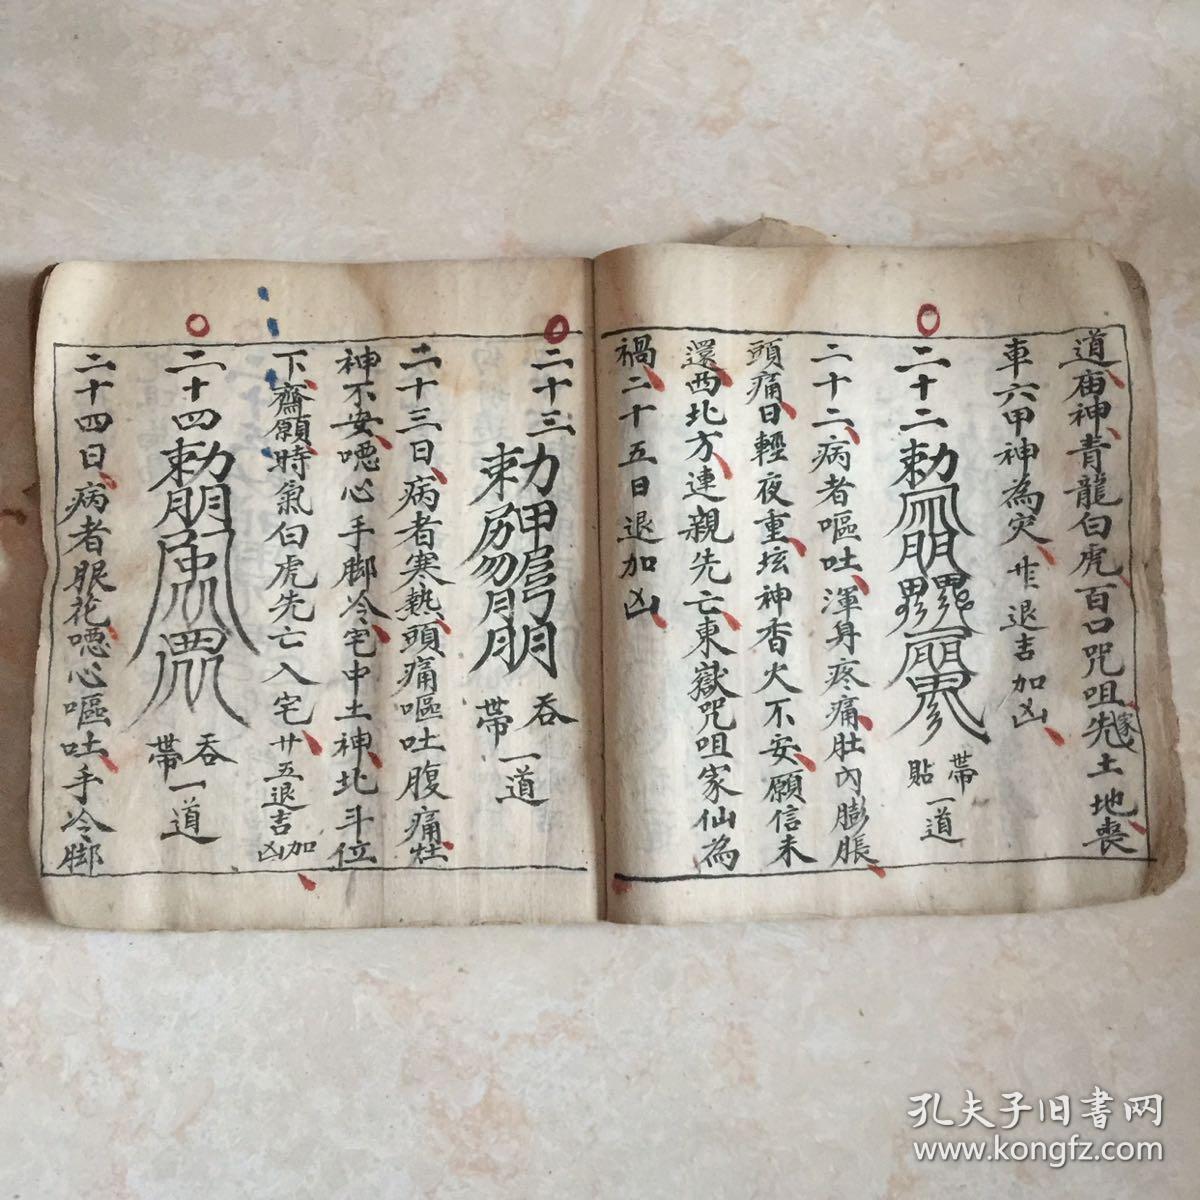 道庙神青龍白虎百口咒咀先土地喪
車六甲神為灾 廿退吉加凶
二十二 勅
帶
貼
一道
二十二病者嘔吐渾身疼痛肚內膨脹
頭痛日輕夜重坛神香火不安願信未
還西北方連親先亡東嶽咒咀家仙為
禍二十五日退加凶
二十三 勅
吞
帶
一道
二十三日病者寒熱頭痛嘔吐腹痛灶
神不安噁心手脚冷宅中土神北斗位
下齋願時氣白虎先亡入宅廿五退吉加凶
二十四 勅
吞
帶
一道
二十四日病者眼花噁心嘔吐手冷脚
孔夫子旧书网
www.kongfz.com